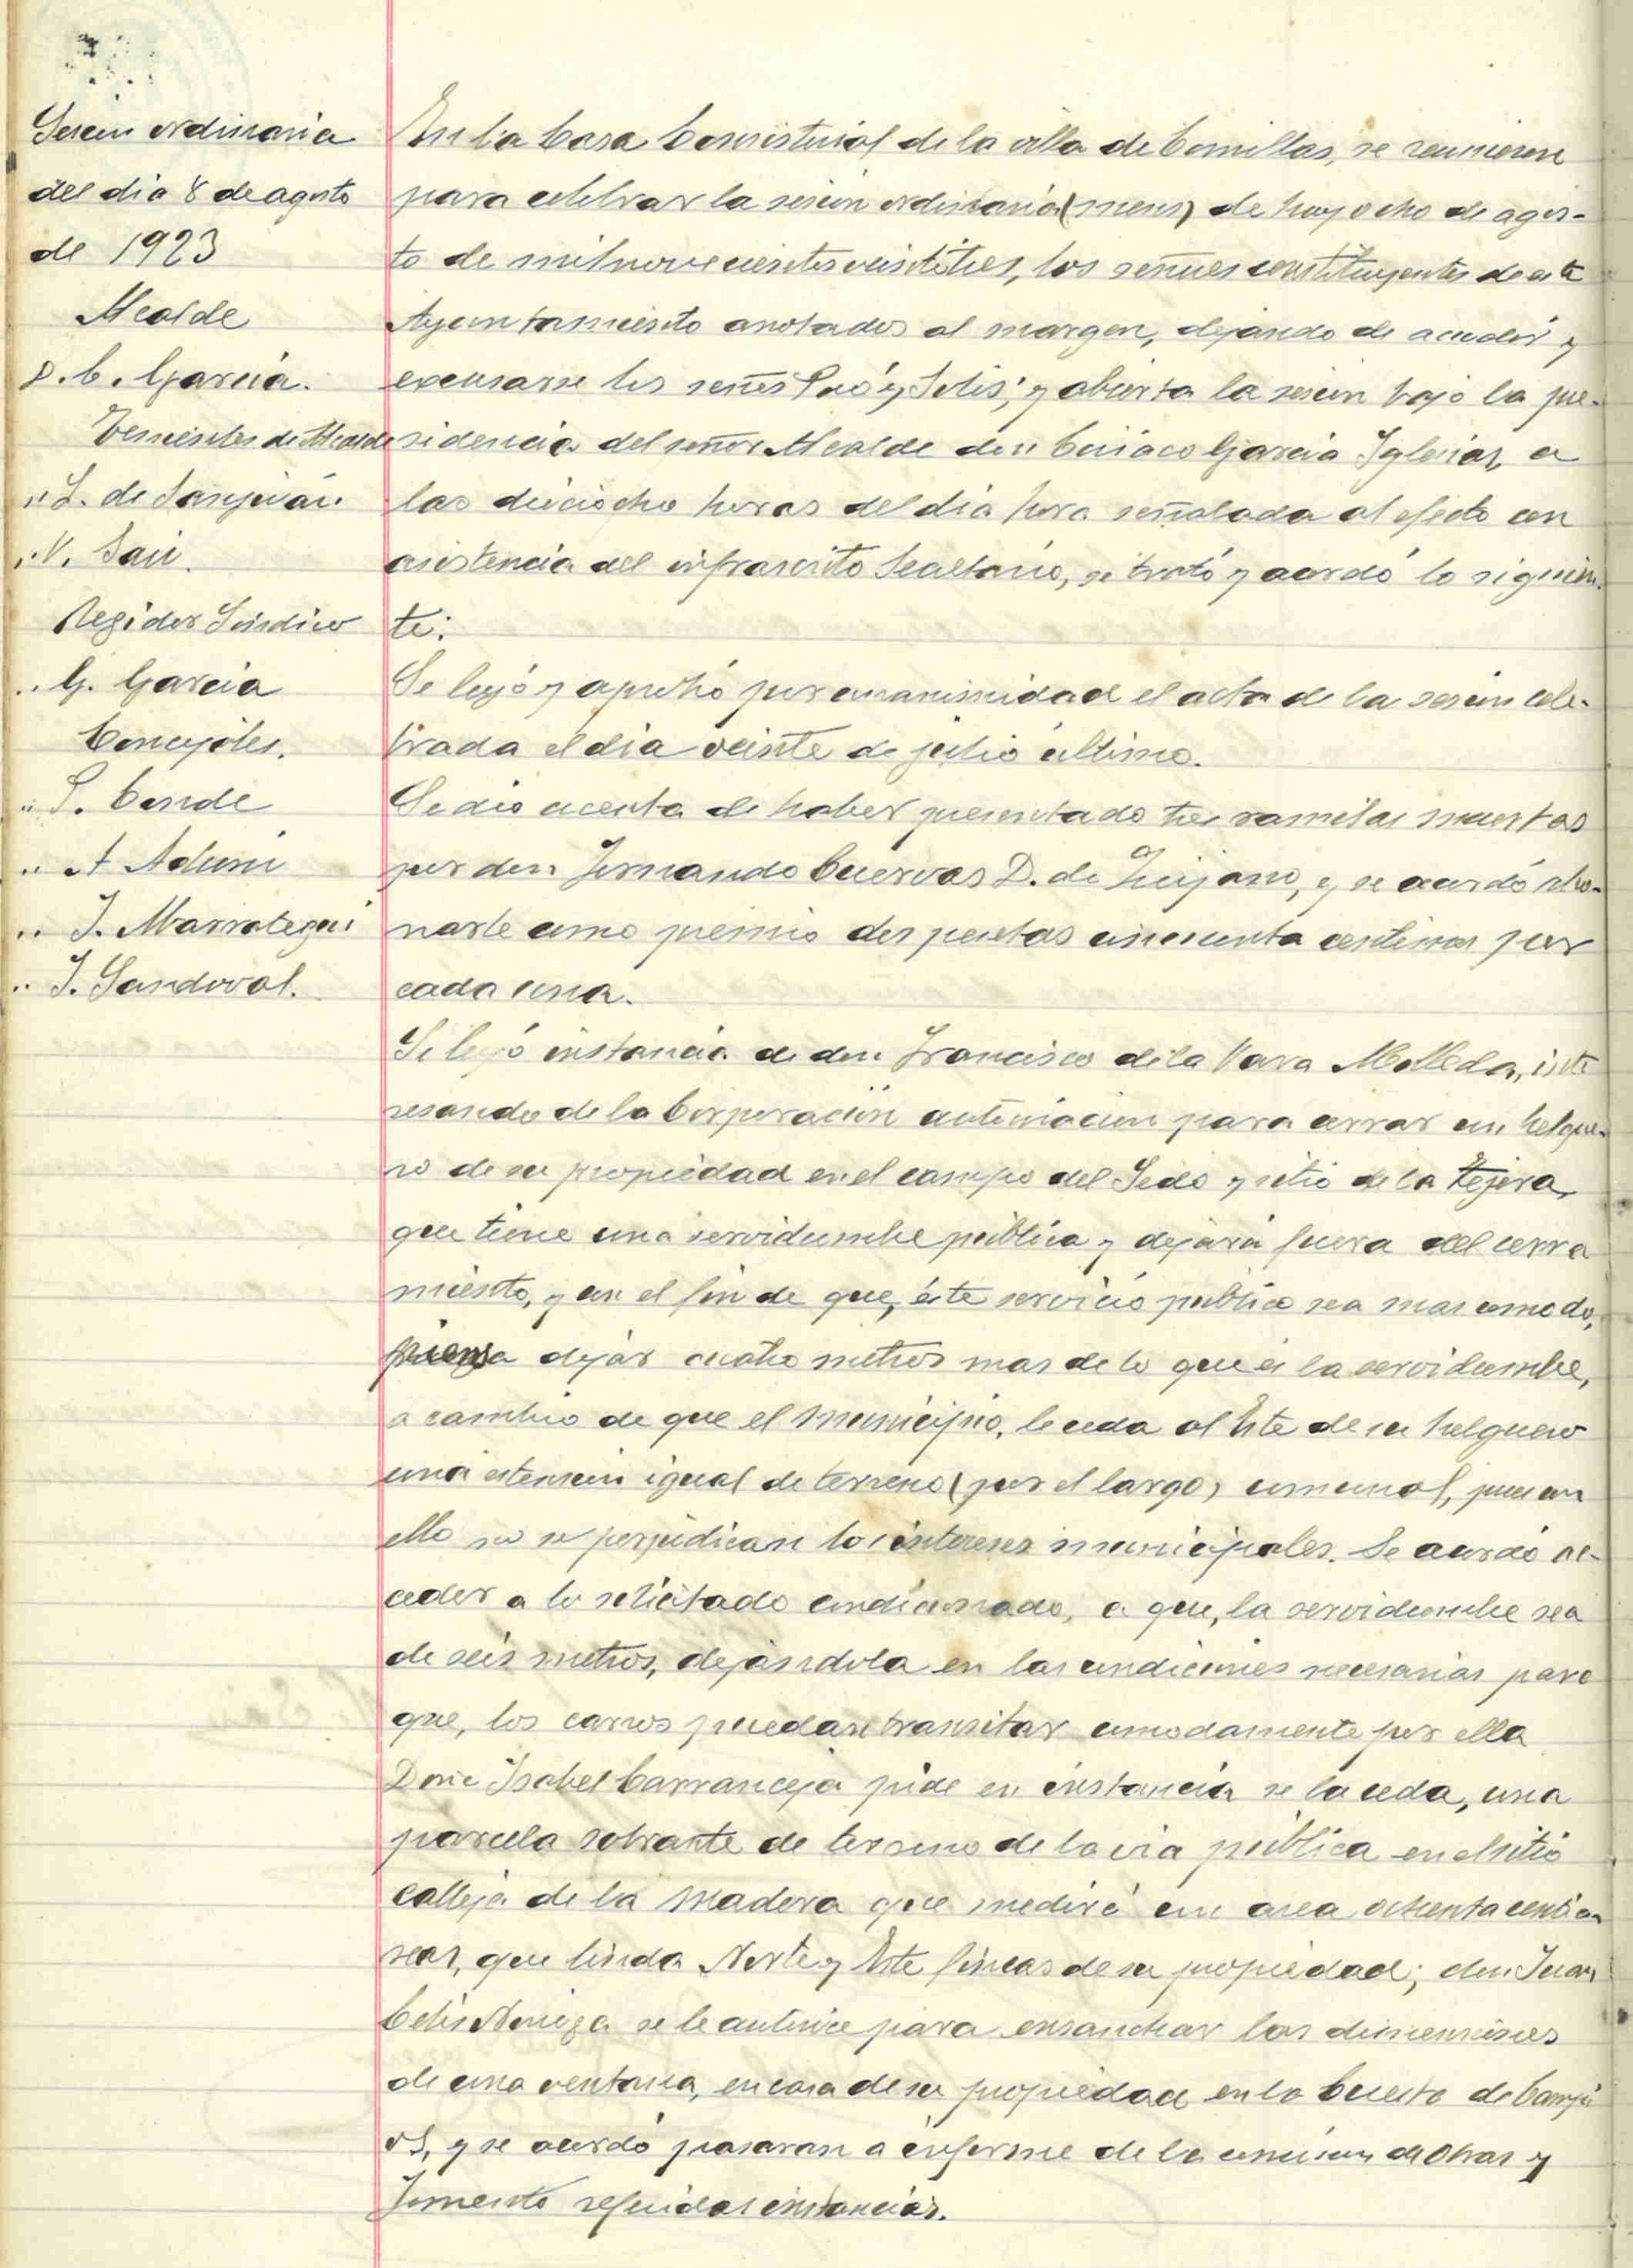 Sesion ordinaria
del dia 8 de agosto
de 1923
Alcalde
D. C. Garcia.
Tenientes de Alcalde
" S. de Sanjuán.
" V. Saiz.
Regidor Sindico
" G. Garcia
Concejales.
" S. Conde
" A
" J. Marrategui
" J. Sandoval.
En la Casa Consistorial de la villa de Comillas, se reunieron
para celebrar la sesion ordinaria (mens) de hoy ocho de agos-
to de mil novecientos veintitres, los señores constituyentes de este
Ayuntamiento anotados al margen, dejando de acudir y
excusarse los señores y Solis; y abierta la sesion bajo la pre-
sidencia del señor Alcalde don Ciriaco Garcia Iglesias, a
las dieciocho horas del dia hora señalada al efecto con
asistencia del infrascrito Secretario, se trató y acordó lo siguien-
te:
Se leyó y aprobó por unanimidad el acta de la sesion cele-
brada el dia veinte de julio ultimo.
Se dio cuenta de haber presentado tres muertas
por don Fernando Cuervas D. de Quijano, y se acordó abo-
narle como premio dos pesetas cincuenta centimos por
cada una.
Se leyó instancia de don Francisco de la Vara Molleda, inte
resando de la Corporación autorizacion para cerrar un helgue-
ro de su propiedad en el campo del Sedo y sitio de la Tejera,
que tiene una servidumbre pública y dejara fuera del cerra
miento, y con el fin de que, éste servicio publico sea mas comodo,
piensa dejar cuatro metros mas de lo que es la servidumbre,
a cambio de que el municipio, le ceda al Este de su helguero
una estension igual de terreno (por el largo) comunal, pues con
ello no se perjudican los intereses municipales. Se acordó ac-
ceder a lo solicitado condicionado, a que, la servidumbre sea
de seis metros, dejándola en las condiciones necesarias para
que, los carros puedan transitar comodamente por ella
Doña Isabel Carranceja pide en instancia se la ceda, una
parcela sobrante de terreno de la via pública en el sitio
calleja de la Madera que medirá un area ochenta centia-
reas, que linda Norte y Este fincas de su propiedad; don Juan
Celis Noriega se le autorice para ensanchar las dimensiones
de una ventana, en casa de su propiedad en la Cuesta de Campi
os, y se acordó pasaran a informe de la comision de Obras y
Fomento referidas instancias.